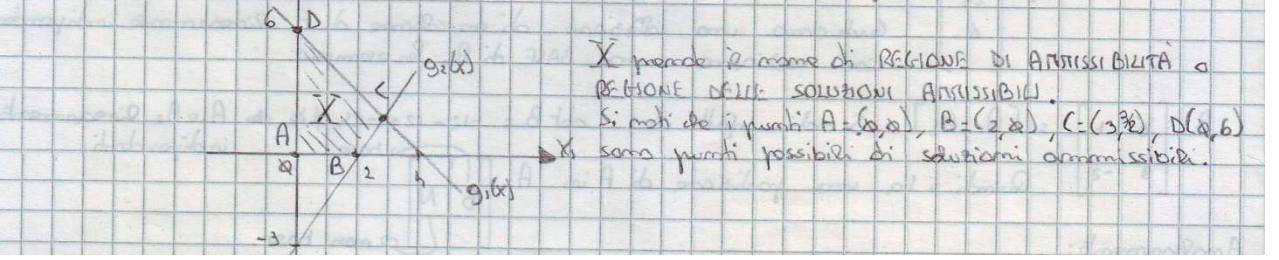 6 D
g₂(x)
C
X
A
0 B 2 4 X₁
g₁(x)
-3
X prende il nome di REGIONE DI AMMISSIBILITÀ o
REGIONE DELLE SOLUZIONI AMMISSIBILI.
Si noti che i punti A=(0,0), B=(2,0), C=(3,3/2), D(0,6)
sono punti possibili di soluzioni ammissibili.